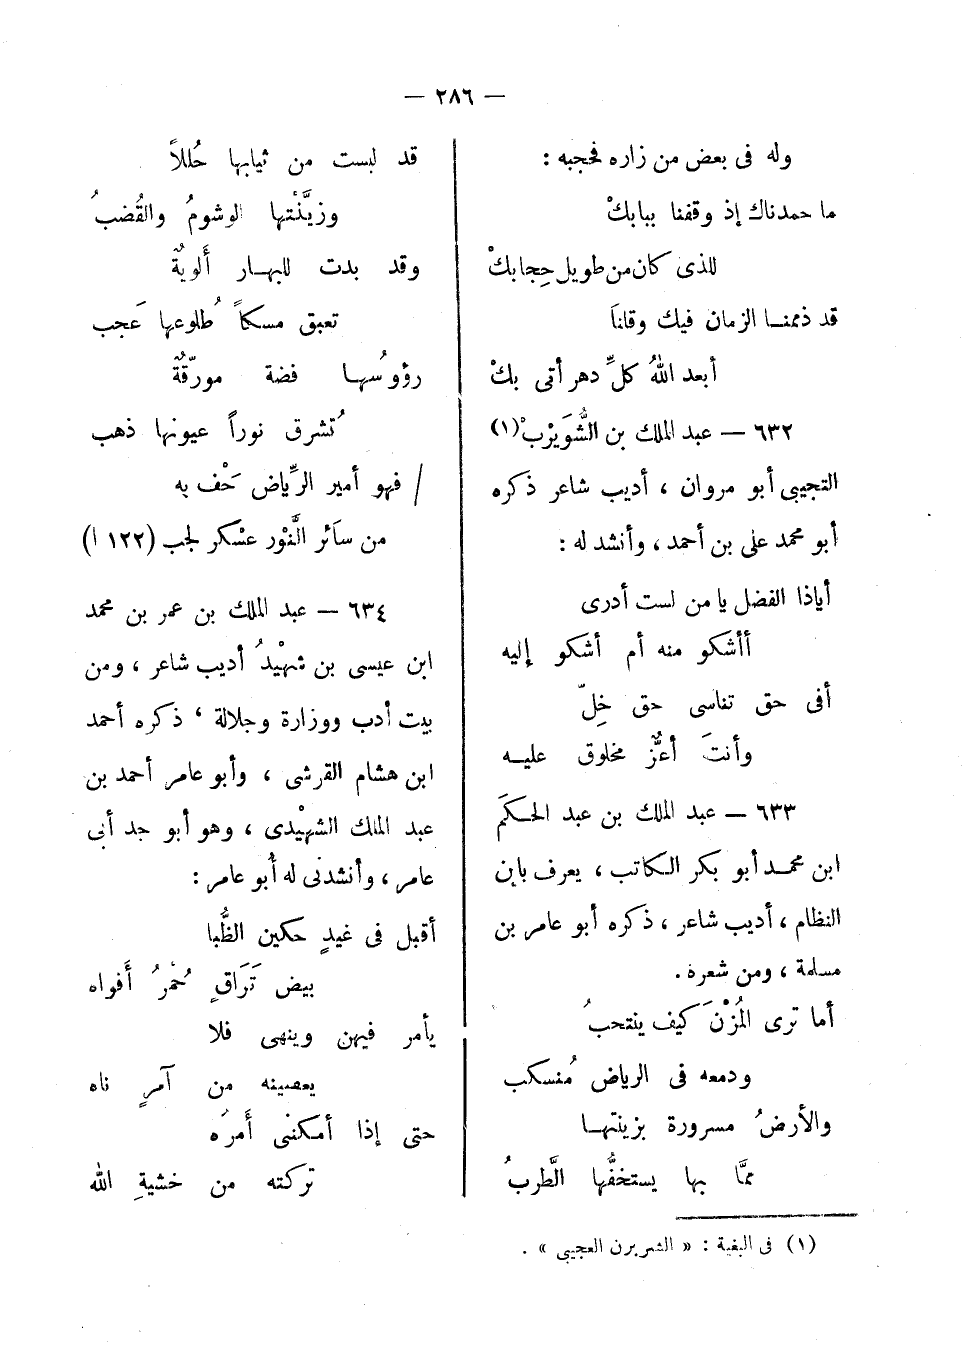 — ٢٨٦ —
وله فى بعض من زاره فحجبه :
ما حمدناك إذ وقفنا ببابكْ
للذى كان من طويل حِجابكْ
قد ذممنا الزمان فيك وقلنا
أبعد اللهُ كلَّ دهر أتى بكْ
٦٣٢ — عبد الملك بن الشُّوَيْرْب (١)
التجيبى أبو مروان ، أديب شاعر ذكره
أبو محمد على بن أحمد ، وأنشد له :
أياذا الفضل يا من لست أدرى
أأشكو منه أم أشكو إليه
أفى حق تناسى حق خِلّ
وأنتَ أعزُّ مخلوق عليه
٦٣٣ — عبد الملك بن عبد الحكَم
ابن محمد أبو بكر الكاتب ، يعرف بابن
النظام ، أديب شاعر ، ذكره أبو عامر بن
مسلمة ، ومن شعره .
أما ترى المُزْنَ كيف ينتحبُ
ودمعه فى الرياض مُنسكب
والأرضُ مسرورة بزينتها
ممَّا بها يستخفُّها الطَّربُ
قد لبست من ثيابها حُللاً
وزيَّنتها الوشومُ والقُضبُ
وقد بدت للبهار أَلويةٌ
تعبق مسكاً طُلوعها عَجب
رؤوسُها فضة مورّقةٌ
تُشرق نوراً عيونها ذهب
/ فهو أمير الرِّياض حَفْ به
من سآئر النَّوْر عسْكر لجب (١٢٢ ا)
٦٣٤ — عبد الملك بن عمر بن محمد
ابن عيسى بن شُهيْد أديب شاعر ، ومن
بيت أدب ووزارة وجلالة ، ذكره أحمد
ابن هشام القرشى ، وأبو عامر أحمد بن
عبد الملك الشهيْدى ، وهو أبو جد أبى
عامر ، وأنشدنى له أبُو عامر :
أقبل فى غيدٍ حكين الظُّبا
بيض تَرَاقٍ حُمْرُ أفَواه
يأمر فيهن وينهى فلا
يعصينه من آمرٍ ناه
حتى إذا أمكننى أَمرُه
تركته من خشيةِ الله
(١) فى البغية : « الشريرن العجيبى » .